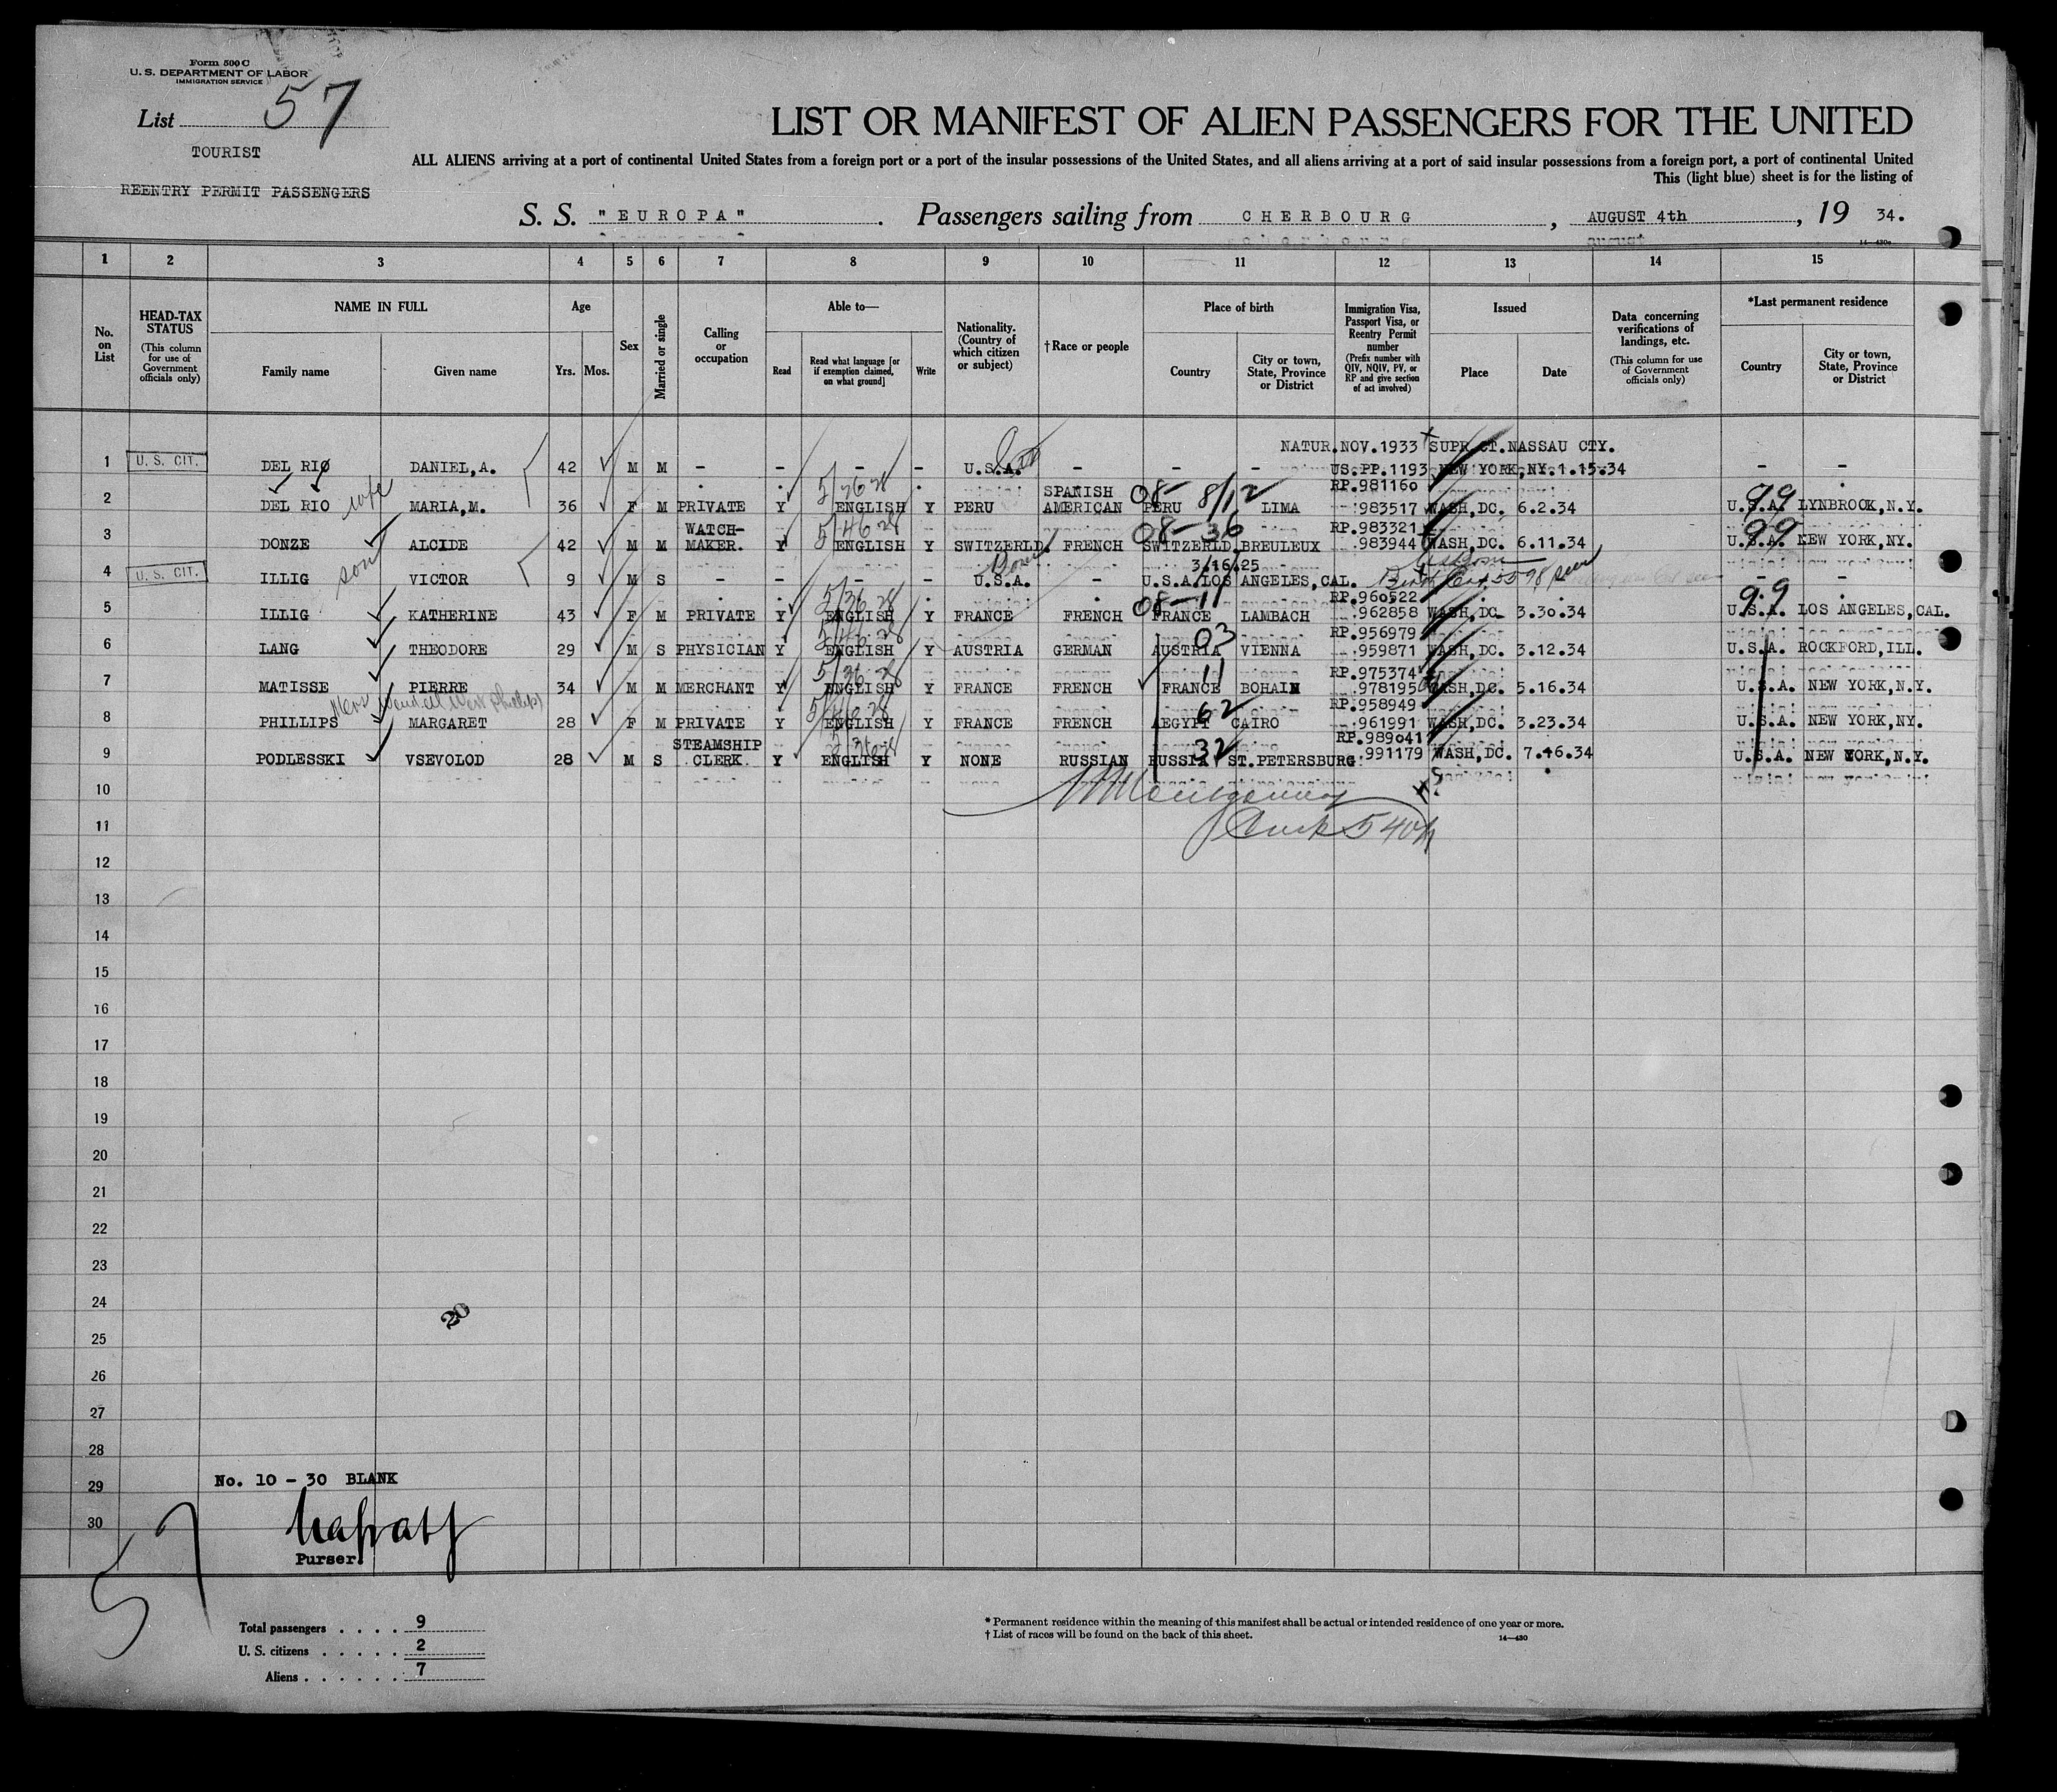 Form 500 C
U. S. DEPARTMENT OF LABOR
IMMIGRATION SERVICE
List 57
TOURIST
REENTRY PERMIT PASSENGERS
LIST OR MANIFEST OF ALIEN PASSENGERS FOR THE UNITED
ALL ALIENS arriving at a port of continental United States from a foreign port or a port of the insular possessions of the United States, and all aliens arriving at a port of said insular possessions from a foreign port, a port of continental United
This (light blue) sheet is for the listing of
S. S. "EUROPA". Passengers sailing from CHERBOURG, AUGUST 4th, 19 34.
14—430e
1 2 3 4 5 6 7 8 9 10 11 12 13 14 15
No. on List
HEAD-TAX STATUS (This column for use of Government officials only)
NAME IN FULL
Family name Given name
Age
Yrs. Mos.
Sex
Married or single
Calling or occupation
Able to—
Read Read what language [or if exemption claimed, on what ground] Write
Nationality. (Country of which citizen or subject)
†Race or people
Place of birth
Country City or town, State, Province or District
Immigration Visa, Passport Visa, or Reentry Permit number (Prefix number with QIV, NQIV, PV, or RP and give section of act involved)
Issued
Place Date
Data concerning verifications of landings, etc. (This column for use of Government officials only)
*Last permanent residence
Country City or town, State, Province or District
NATUR.NOV.1933 SUPR.CT.NASSAU CTY.
1 U. S. CIT. DEL RIO DANIEL,A. 42 M M - - - - U.S.A. - - - US.PP.1193 NEW YORK,NY.1.15.34 - -
wife 5/26 28 SPANISH 08- 8/12 RP.981160 99
2 DEL RIO MARIA,M. 36 F M PRIVATE Y ENGLISH Y PERU AMERICAN PERU LIMA 983517 WASH,DC. 6.2.34 U.S.A. LYNBROOK,N.Y.
WATCH- 5/46 28 08-36 RP.983321 99
3 DONZE ALCIDE 42 M M MAKER. Y ENGLISH Y SWITZERLD. FRENCH SWITZERLD.BREULEUX 983944 WASH,DC. 6.11.34 U.S.A. NEW YORK,NY.
son 3.16.25
4 U. S. CIT. ILLIG VICTOR 9 M S - - - - U.S.A. - U.S.A.LOS ANGELES,CAL. - -
5/36 28 08-11 RP.960522 99
5 ILLIG KATHERINE 43 F M PRIVATE Y ENGLISH Y FRANCE FRENCH FRANCE LAMBACH 962858 WASH,DC. 3.30.34 U.S.A. LOS ANGELES,CAL.
03 RP.956979
6 LANG THEODORE 29 M S PHYSICIAN Y ENGLISH Y AUSTRIA GERMAN AUSTRIA VIENNA 959871 WASH,DC. 3.12.34 U.S.A. ROCKFORD,ILL.
5/36 28 11 RP.975374
7 MATISSE PIERRE 34 M M MERCHANT Y ENGLISH Y FRANCE FRENCH FRANCE BOHAIN 978195 WASH,DC. 5.16.34 U.S.A. NEW YORK,N.Y.
Mrs Wendell West Phillips 5/46 28 62 RP.958949
8 PHILLIPS MARGARET 28 F M PRIVATE Y ENGLISH Y FRANCE FRENCH AEGYPT CAIRO 961991 WASH,DC. 3.23.34 U.S.A. NEW YORK,NY.
STEAMSHIP 32 RP.989041
9 PODLESSKI VSEVOLOD 28 M S CLERK Y ENGLISH Y NONE RUSSIAN RUSSIA ST.PETERSBURG. 991179 WASH,DC. 7.16.34 U.S.A. NEW YORK,N.Y.
10
11
12
13
14
15
16
17
18
19
20
21
22
23
24
20
25
26
27
28
No. 10 - 30 BLANK
29
30
Purser.
57
Total passengers . . . . 9
U. S. citizens . . . . . 2
Aliens . . . . . . 7
* Permanent residence within the meaning of this manifest shall be actual or intended residence of one year or more.
† List of races will be found on the back of this sheet.
14—430